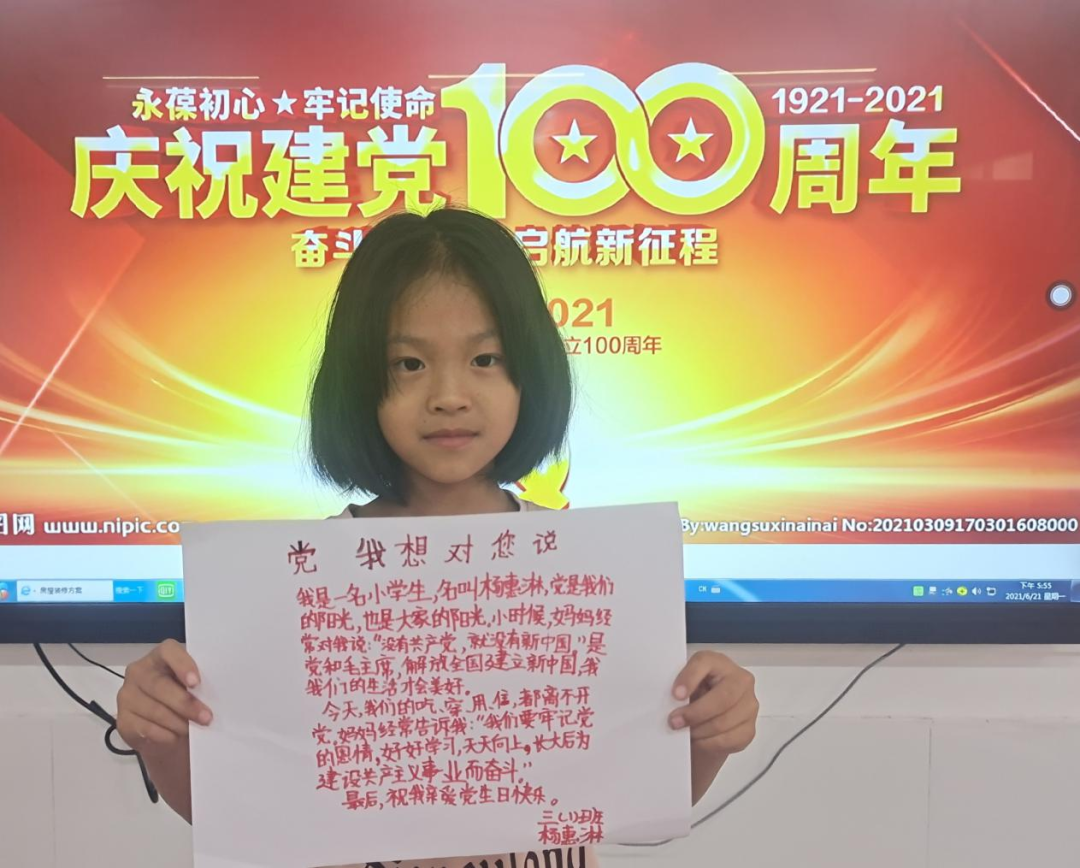 永葆初心★牢记使命
1921-2021
庆祝建党100周年
奋斗
启航新征程
2021
立100周年
图网 www.nipic.co
By:wangsuxinainai No:20210309170301608000
房屋装修方案
搜索一下
CH
下午 5:55
2021/6/21 星期一
党 我想对您说
我是一名小学生,名叫杨惠淋,党是我们
的阳光,也是大家的阳光,小时候,妈妈经
常对我说:“没有共产党,就没有新中国。”是
党和毛主席,解放全国建立新中国,我
我们的生活才会美好。
今天,我们的吃、穿、用、信,都离不开
党,妈妈经常告诉我:“我们要牢记党
的恩情,好好学习,天天向上,长大后为
建设共产主义事业而奋斗。”
最后,祝我亲爱党生日快乐。
三(1)班
杨惠淋